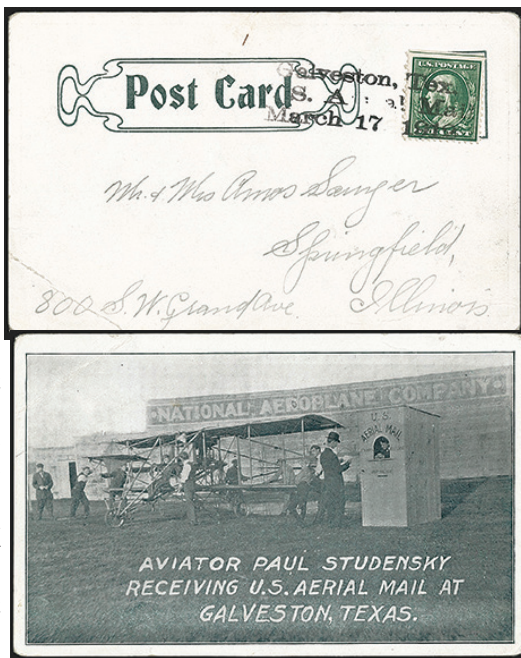 Post Card
Galveston, Tex.
S. A
March 17
U.S. POSTAGE
Mr. & Mrs Amos Sawyer
Springfield,
800 S. W. Grand Ave. Illinois
NATIONAL AEROPLANE COMPANY
U.S.
AERIAL MAIL
AVIATOR PAUL STUDENSKY
RECEIVING U.S. AERIAL MAIL AT
GALVESTON, TEXAS.